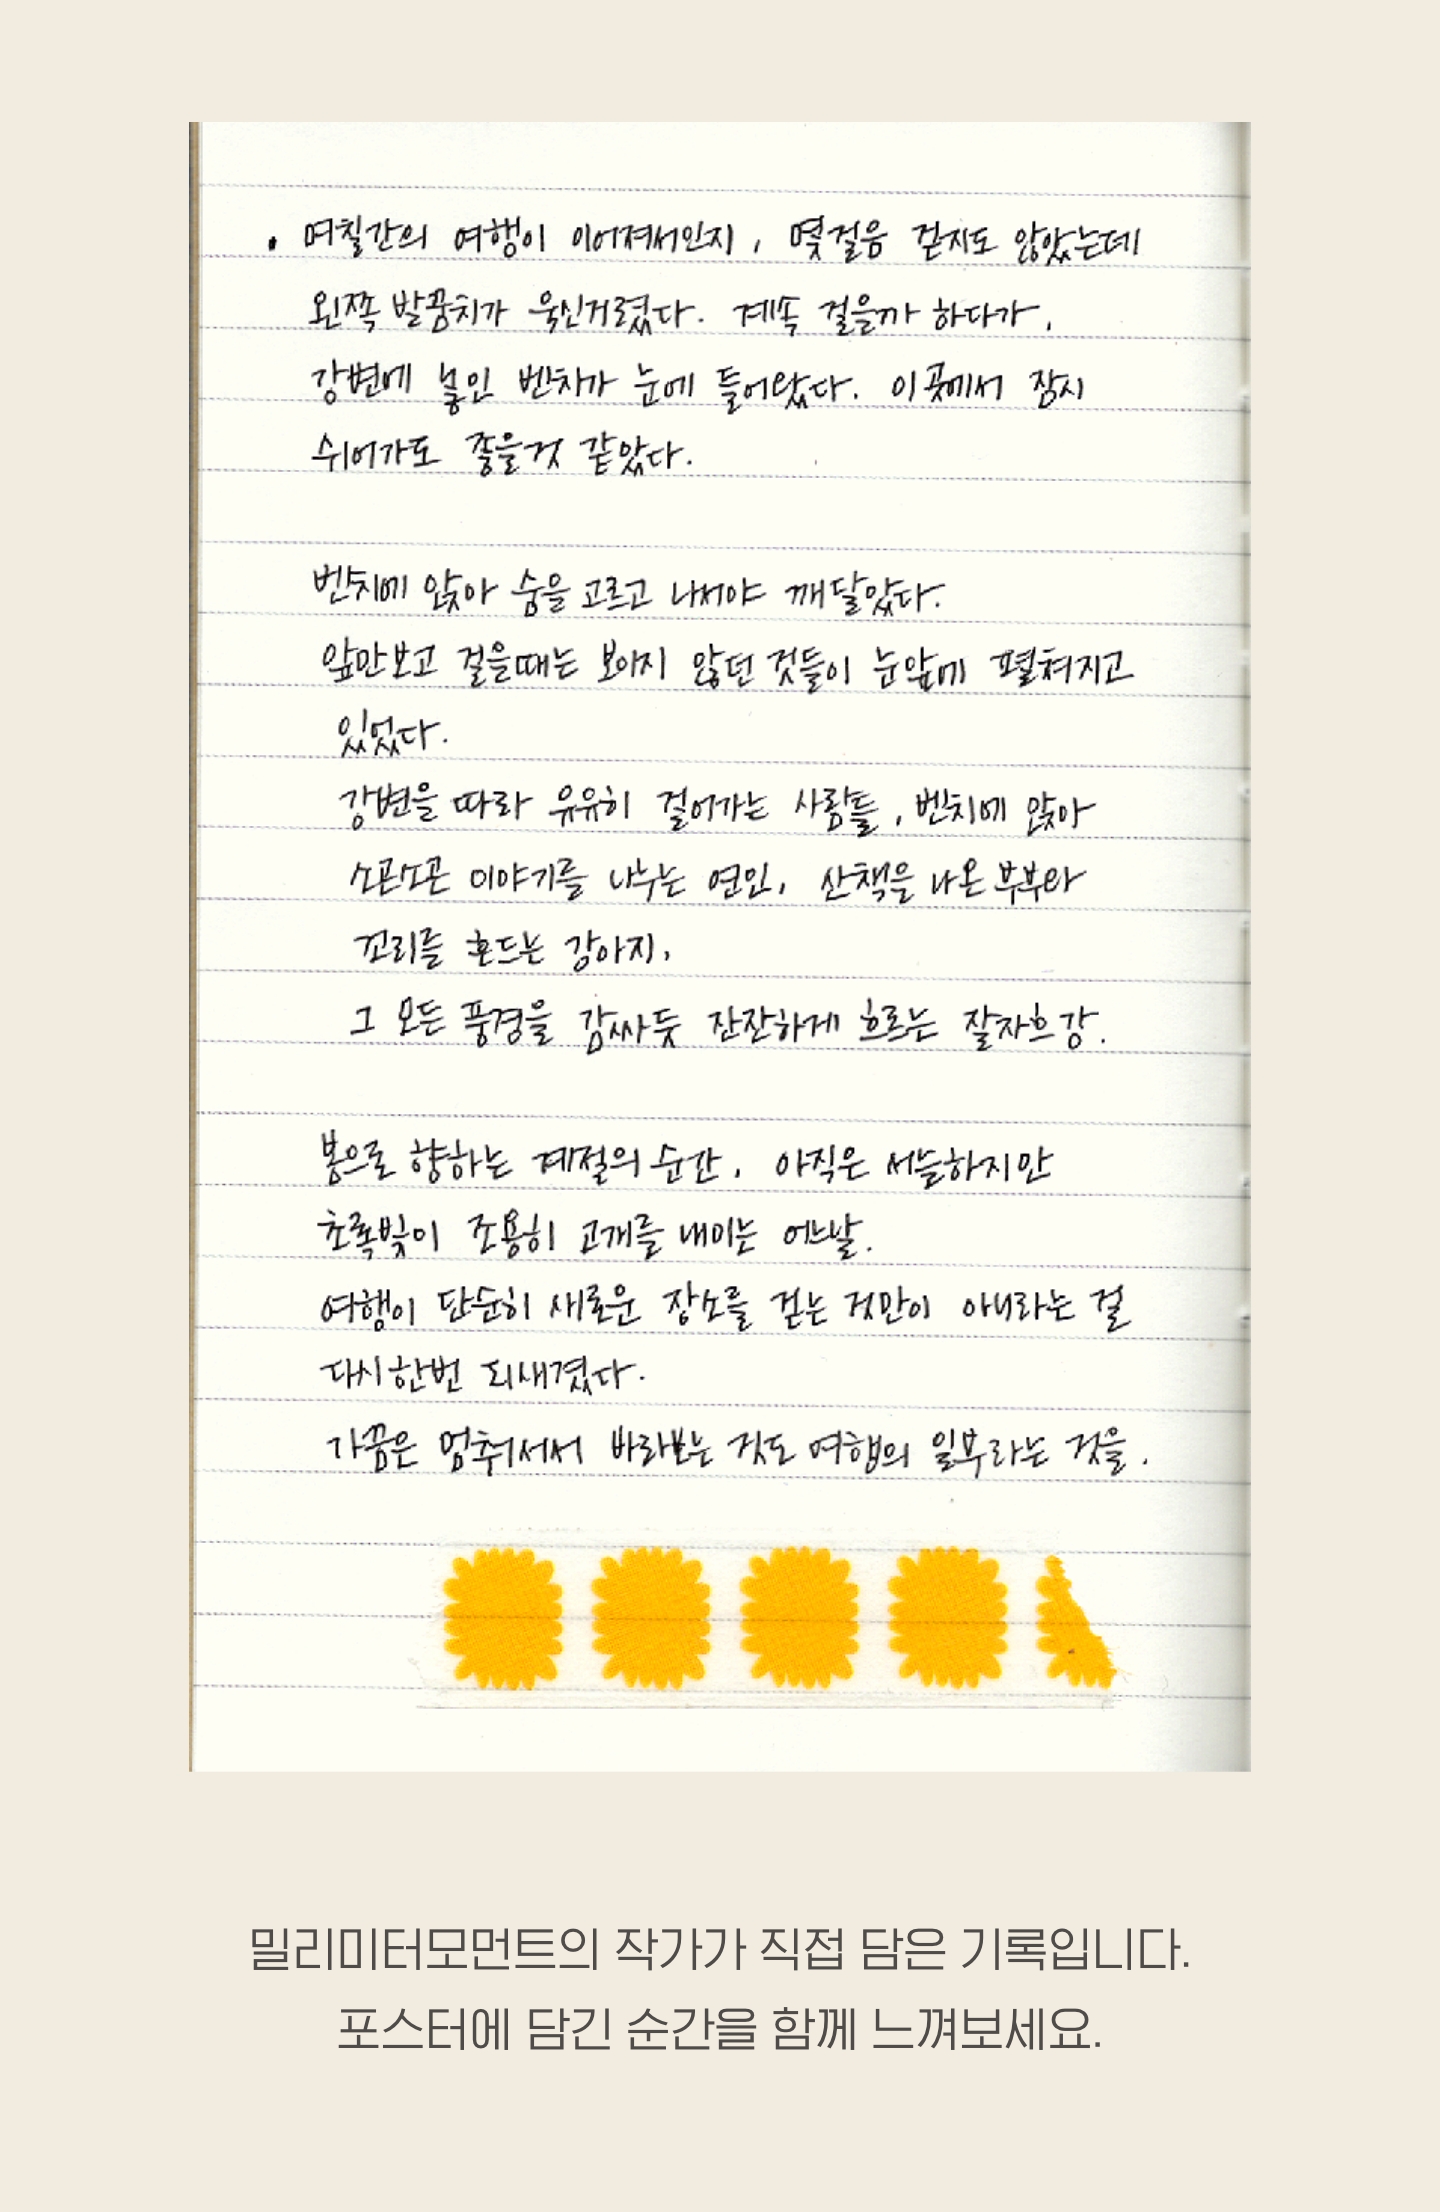 . 며칠간의 여행이 이어져서인지, 몇걸음 걷지도 않았는데
왼쪽 발꿈치가 욱신거렸다. 계속 걸을까 하다가,
강변에 놓인 벤치가 눈에 들어왔다. 이곳에서 잠시
쉬어가도 좋을것 같았다.
벤치에 앉아 숨을 고르고 나서야 깨달았다.
앞만보고 걸을때는 보이지 않던 것들이 눈앞에 펼쳐지고
있었다.
강변을 따라 유유히 걸어가는 사람들, 벤치에 앉아
소곤소곤 이야기를 나누는 연인, 산책을 나온 부부와
꼬리를 흔드는 강아지,
그 모든 풍경을 감싸듯 잔잔하게 흐르는 잘자흐강.
봄으로 향하는 계절의 순간, 아직은 서늘하지만
초록빛이 조용히 고개를 내미는 어느날.
여행이 단순히 새로운 장소를 걷는 것만이 아니라는 걸
다시한번 되새겼다.
가끔은 멈춰서서 바라보는 것도 여행의 일부라는 것을.
밀리미터모먼트의 작가가 직접 담은 기록입니다.
포스터에 담긴 순간을 함께 느껴보세요.